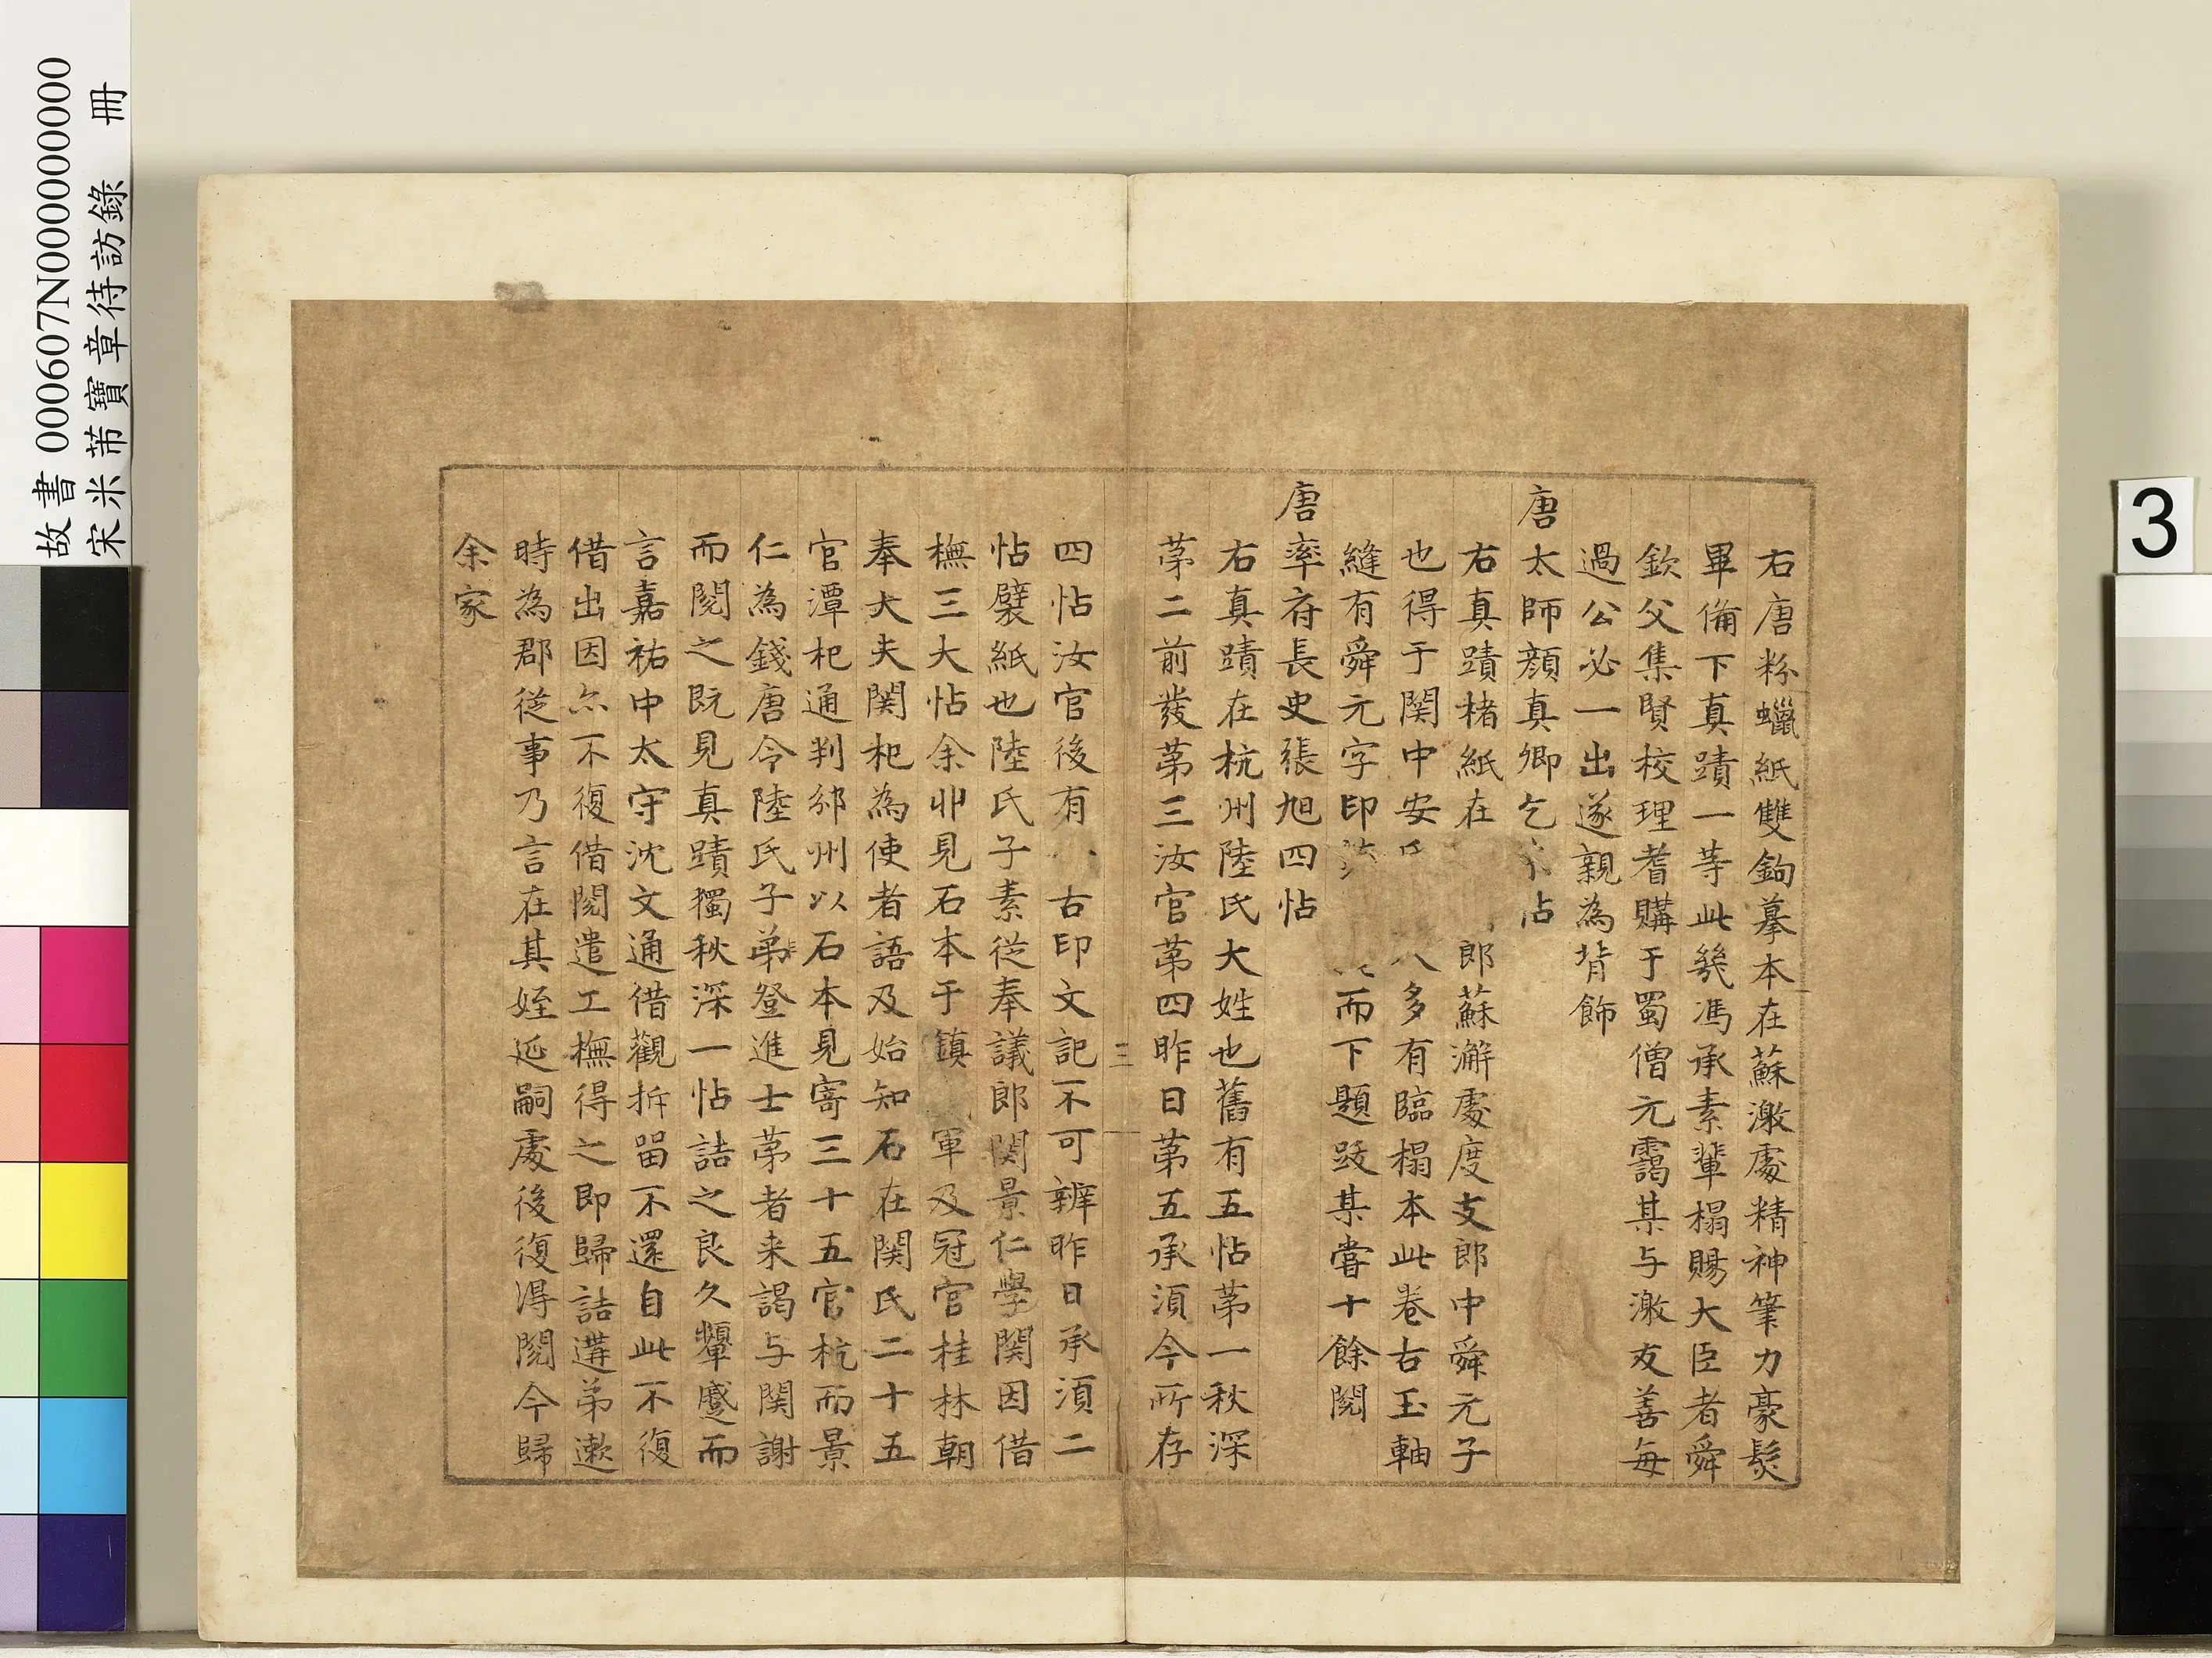 右唐粉蠟紙雙鉤摹本在蘇激處精神筆力豪髮
畢備下真蹟一等此幾馮承素輩榻賜大臣者舜
欽父集賢校理耆購于蜀僧元靄某与激友善每
過公必一出遂親為背飾
唐太師顏真卿乞帖
右真蹟楮紙在郎蘇澥處度支郎中舜元子
也得于関中安氏多有臨榻本此卷古玉軸
縫有舜元字印而下題跋某嘗十餘閱
唐率府長史張旭四帖
右真蹟在杭州陸氏大姓也舊有五帖苐一秋深
苐二前發苐三汝官苐四昨日苐五承湏今所存
三
四帖汝官後有古印文記不可辨昨日承湏二
帖襞紙也陸氏子素從奉議郎関景仁學関因借
橅三大帖余丱見石本于鎮軍及冠官桂林朝
奉大夫関杞為使者語及始知石在関氏二十五
官潭杞通判邠州以石本見寄三十五官杭而景
仁為錢唐令陸氏子弟登進士苐者来謁与関謝
而閱之既見真蹟獨秋深一帖詰之良久顰蹙而
言嘉祐中太守沈文通借觀拆留不還自此不復
借出因亦不復借閱遣工橅得之即歸詰遘弟遫
時為郡從事乃言在其姪延嗣處後復淂閱今歸
余家
故書 000607N000000000
宋米芾寶章待訪錄 冊
3